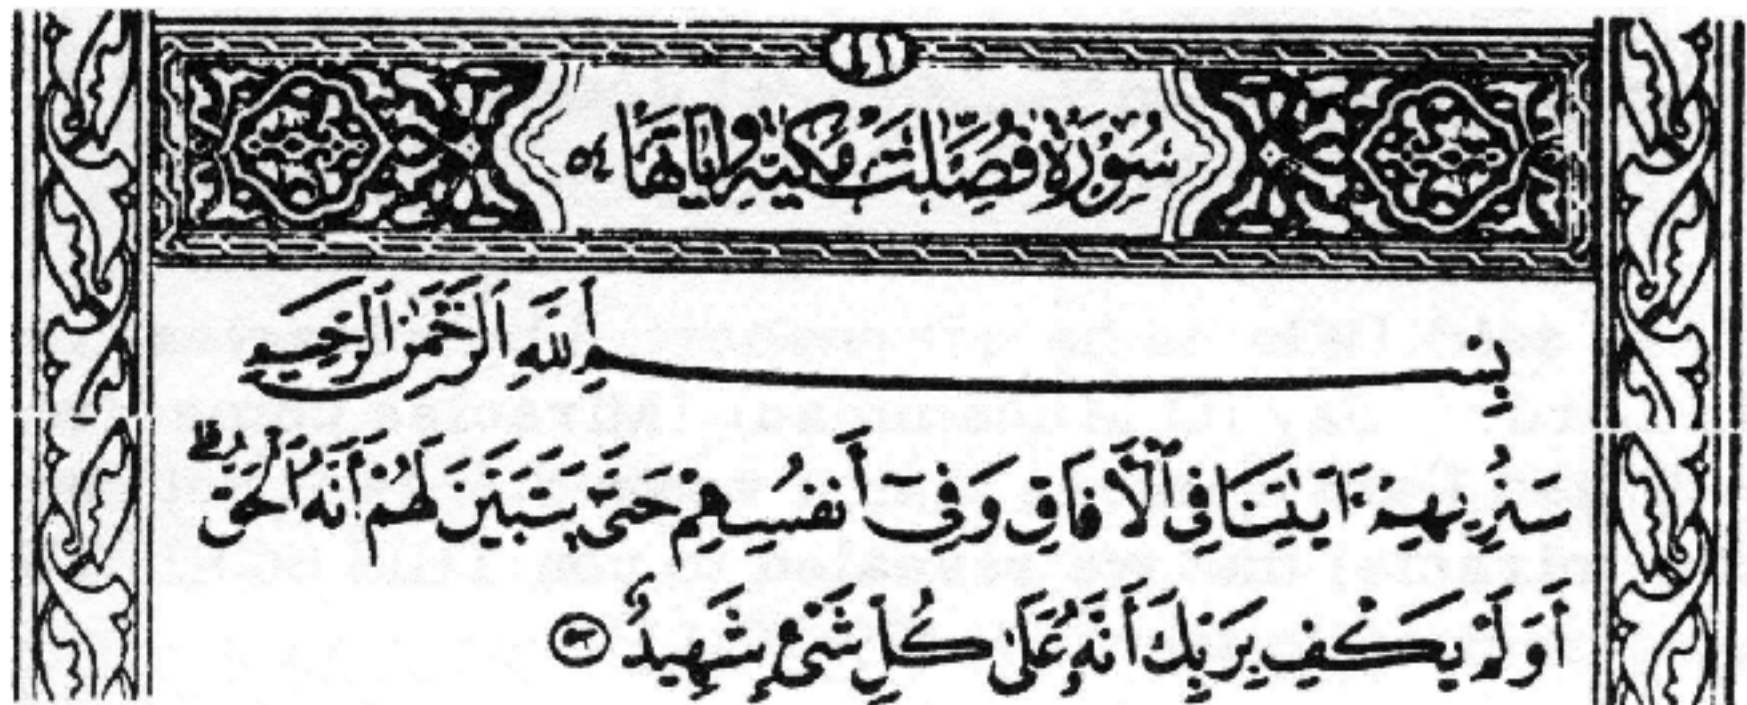 ٤١
سُورَةُ فُصِّلَتْ مَكِّيَّةٌ وَآيَاتُهَا ٥٤
بِسْمِ ٱللَّهِ ٱلرَّحْمَٰنِ ٱلرَّحِيمِ
سَنُرِيهِمْ ءَايَٰتِنَا فِى ٱلْأَفَاقِ وَفِىٓ أَنفُسِهِمْ حَتَّىٰ يَتَبَيَّنَ لَهُمْ أَنَّهُ ٱلْحَقُّ ۗ
أَوَلَمْ يَكْفِ بِرَبِّكَ أَنَّهُۥ عَلَىٰ كُلِّ شَىْءٍ شَهِيدٌ ٥٣